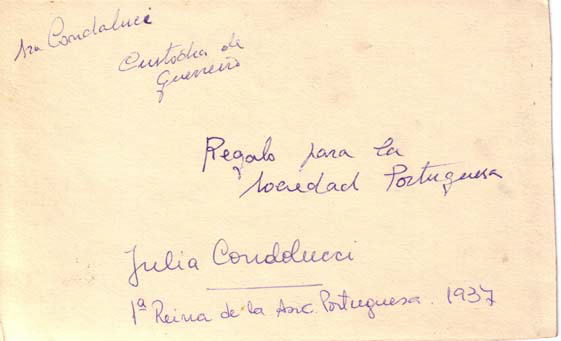 Sra Condaluci
Custodia de
Guerreiro
Regalo para la
Sociedad Portuguesa
Julia Condolucci
1ª Reina de la Asoc. Portuguesa. 1937